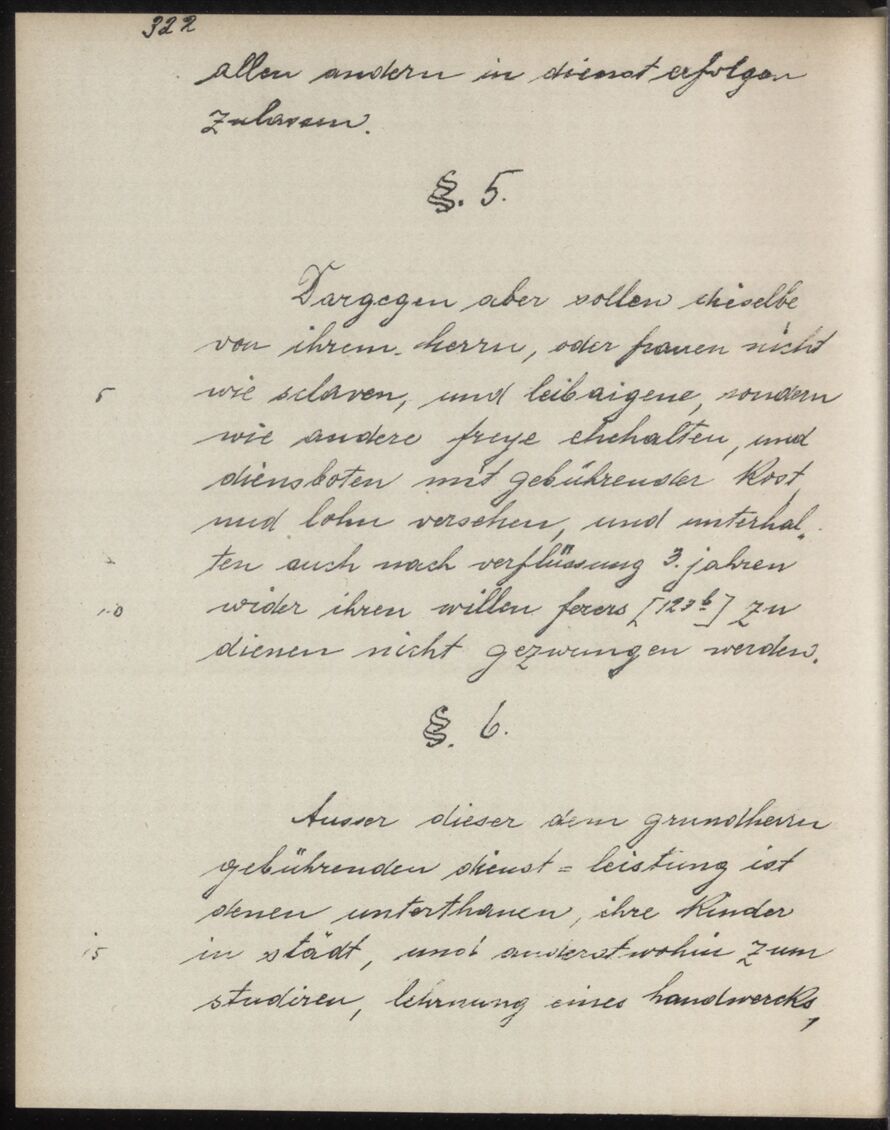 322
allen andern in dienst erfolgen
zulassen.
§. 5.
Dargegen aber sollen dieselbe
von ihrem herrn, oder frauen nicht
5 wie sclaven, und leibaigene, sondern
wie andere freye ehehalten, und
diensboten mit gebührender Kost,
und lohn versehen, und unterhal„
ten auch nach verflüssung 3. jahren
10 wider ihren willen ferers [123b] zu
dienen nicht gezwungen werden.
§. 6.
Ausser dieser dem grundherrn
gebührenden dienst=leistung ist
denen unterthanen, ihre Kinder
15 in städt, und anderstwohin zum
studiren, lehrnung eines handwercks,